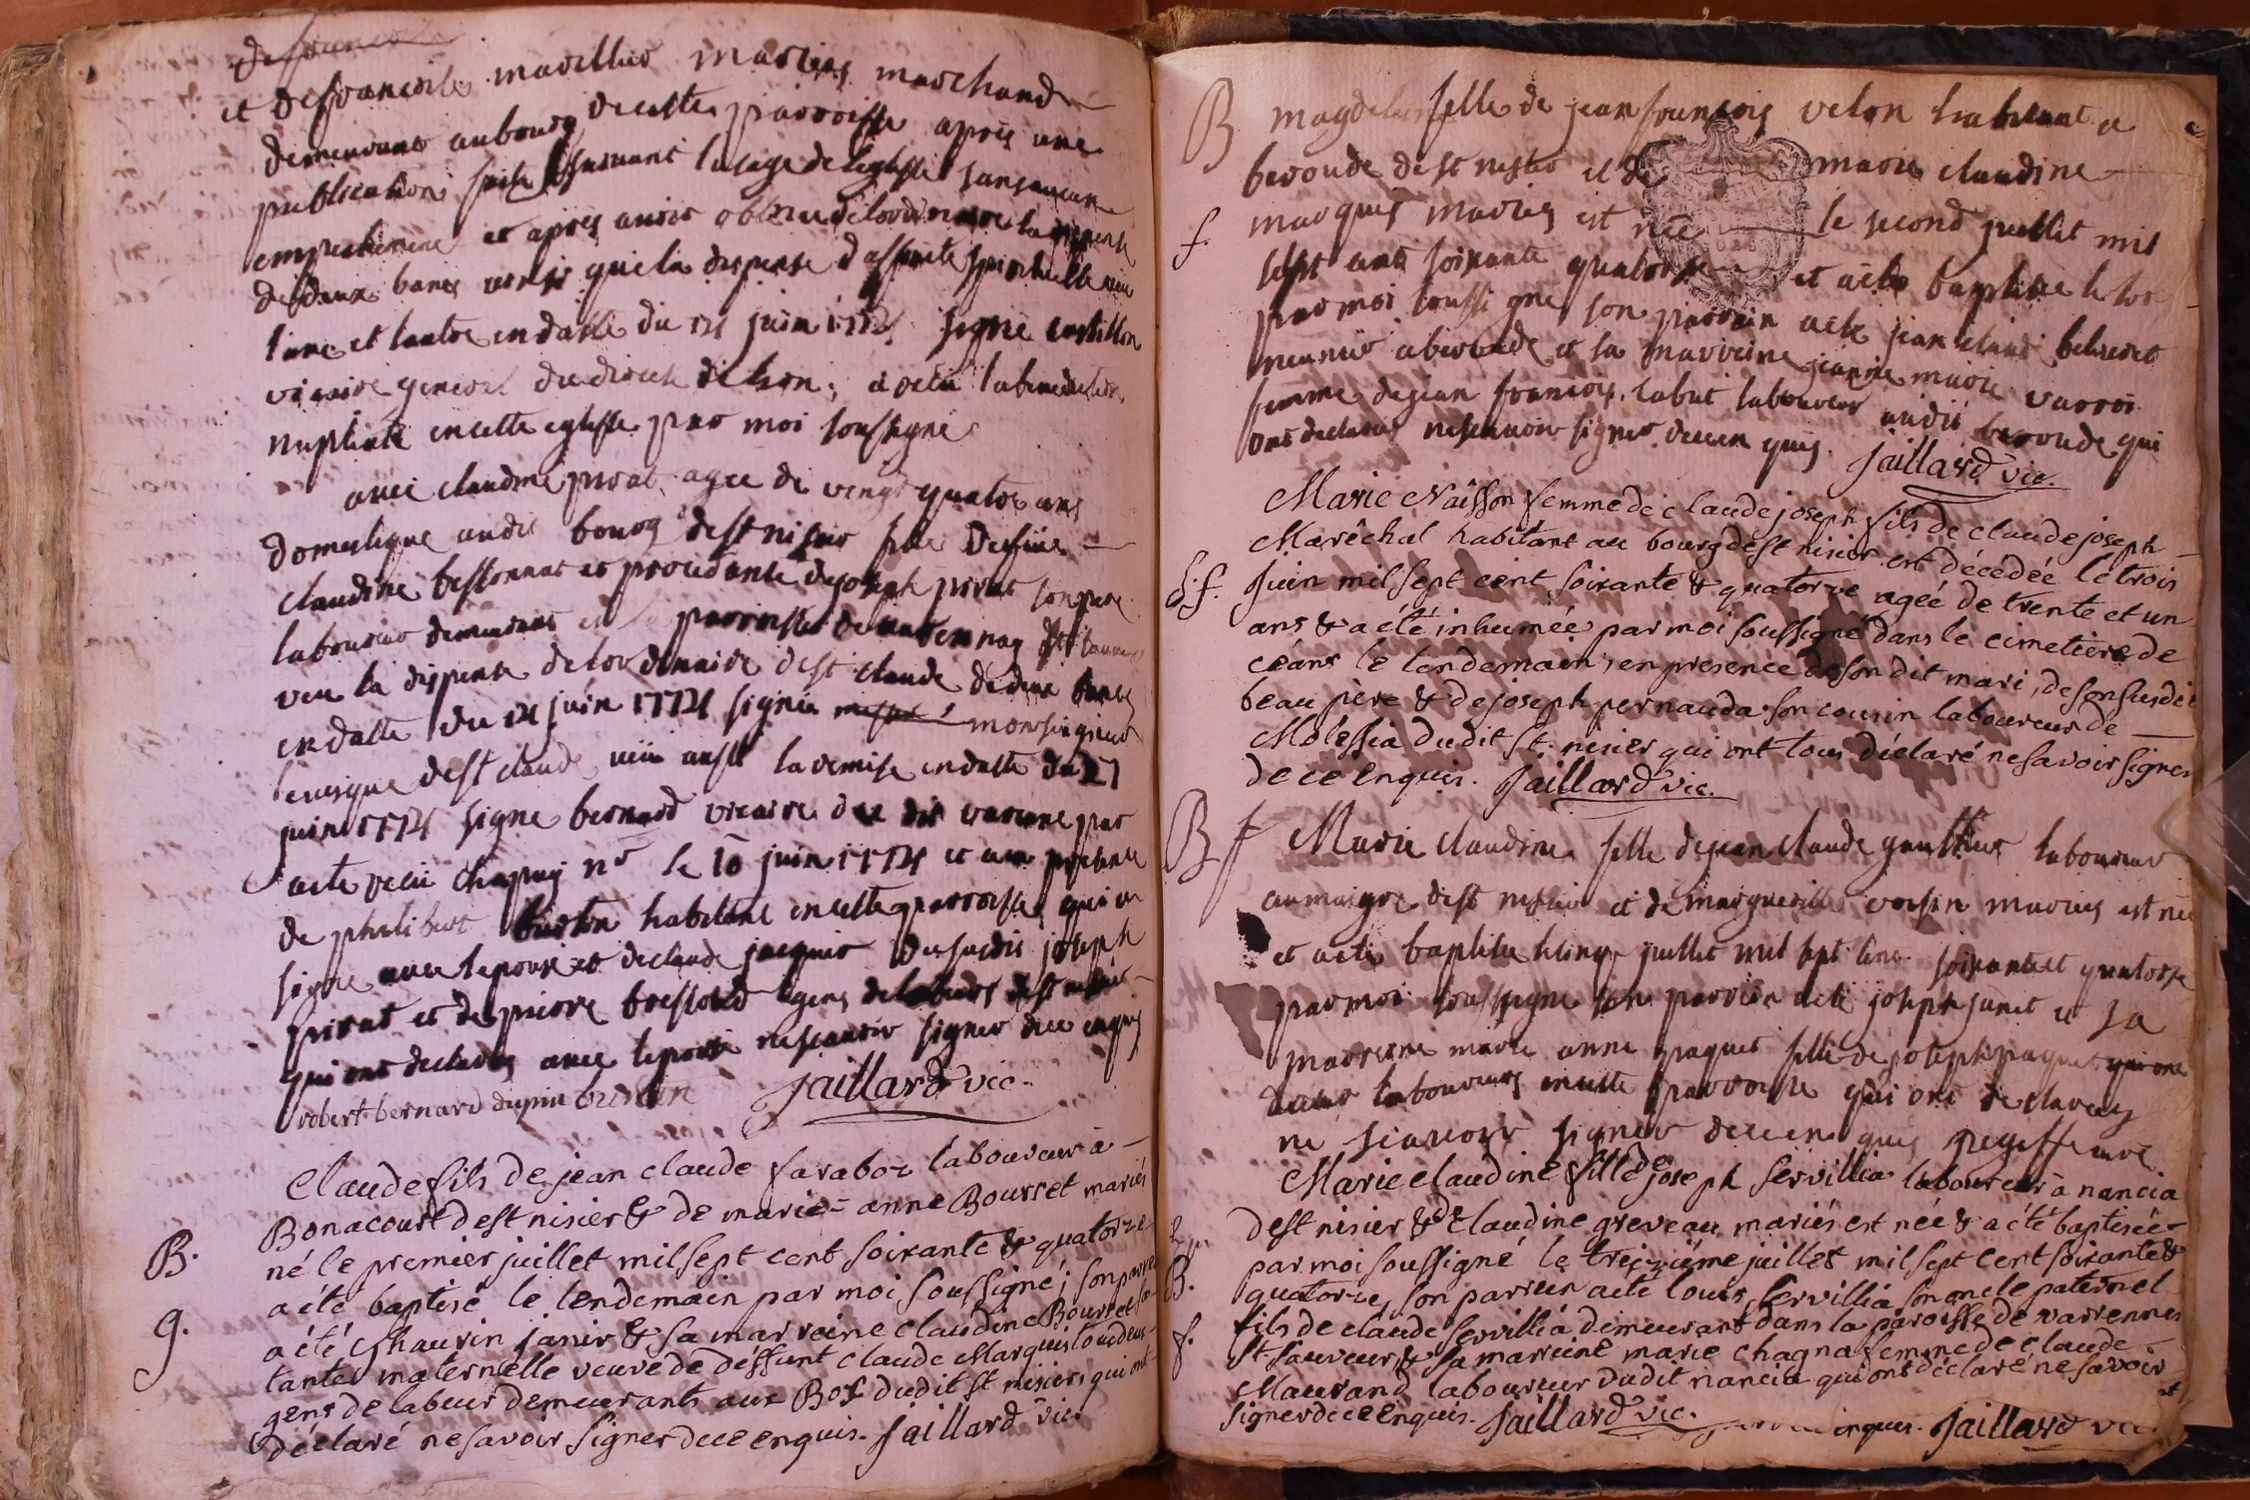 et de francoise marillier mariés marchand
demeurant au bourg de cette parroisse apris une
publication faite suivant lusage de leglise sans aucun
empechement et apres avoir obtenu de lordinaire la dispense
de deux bancs que la dispense d affinite spirituelle
lune et lautre en datte du 14 juin 1774 signé castillon
vicaire general du diocese de lion, a recu la benediction
nuptiale en cette eglise par moi soussigné
avec claudine privat agee de vingt quatre ans
domestique audit bourg de st nisier fille de fûe
claudine bestonnat et procedante de joseph privat son pere
laboureur demeurant en la parroisse de
veu la dispense de lordinaire de st claude de deux bancs
en datte du 14 juin 1774 signée monseigneur
levesque de st claude, veu aussi la remise en datte du 21
juin 1774 signe bernard vicaire du dit par
acte recu chapuy nre le 10 juin 1774 et en presence
de philibert buston habitant en cette parroisse qui a
signe avec lepoux et de claude jacquier du susdit joseph
privat et de pierre bressoud gens de labeurs de st nisier
qui ont declarés avec lepouse ne scavoir signer de ce enquis
robert bernard dupin Jaillard vic.
Claude fils de jean claude farabox laboureur à
B. Bonacourt de st nisier & de marie-anne Bourset mariés
né le premier juillet mil sept cent soixante & quatorze
a été baptisé le lendemain par moi soussigné; son parrein
g. a été janin & sa marreine claudine Bourset sa
tante maternelle veuve de deffunt claude Marquis tou deux
gens de labeur demeurants aux Bos dudit st nisier, qui ont
déclaré ne savoir signer de ce enquis. Jaillard vic.
B magdelene fille de jean francois velon habitant a
beroude de st nisier et de marie claudine
f. marquis mariés est née le second juillet mil
sept cent soixante quatorze et a été baptisée le
par moi soussigné son parrein a été jean claude
meunier a beroude et sa marreine jeanne marie varrot
femme de jean francois cabut laboureur audit beroude qui
ont declarés ne scavoir signer de ce enquis. Jaillard vic.
Marie Naîsson femme de claude joseph fils de claude joseph
Maréchal habitant au bourg de st nisier est décedée le trois
S. f. juin mil sept cent soixante & quatorze ageé de trente et un
ans & a été inhumée par moi soussigné dans le cimetiere de
céans le lendemain, en presence de son dit mari, de son susdit
beau père & de joseph pernauda son cousin laboureur de
Moléssia dudit st. nisier qui ont tous déclaré ne savoir signer
de ce enquis. Jaillard vic.
B f Marie claudine fille de jean claude gauthier laboureur
au maigre de st nisier et de marguerite voisin mariés est née
et a été baptisée le cinq juillet mil sept cent soixante et quatorze
par moi soussigne son parrein a été joseph janet et sa
marreine marie anne paquet fille de joseph paquet qui ont
laboureurs en cette parroisse qui ont declarés
ne scavoir signer de ce enquis
Marie claudine fille de joseph servillia laboureur à nancia
de st nisier & de claudine greveau mariés est née & a été baptisée
B. par moi soussigné le treizième juillet mil sept cent soixante &
quatorze, son parrein a été louis servillia son oncle paternel
fils de claude servillia demeurant dans la paroisse de varrennes
f. st sauveur, & sa marreine marie chagna femme de claude
Maurand laboureur dudit nancia qui ont déclaré ne savoir
signer de ce enquis. Jaillard vic. enquis. Jaillard vic.